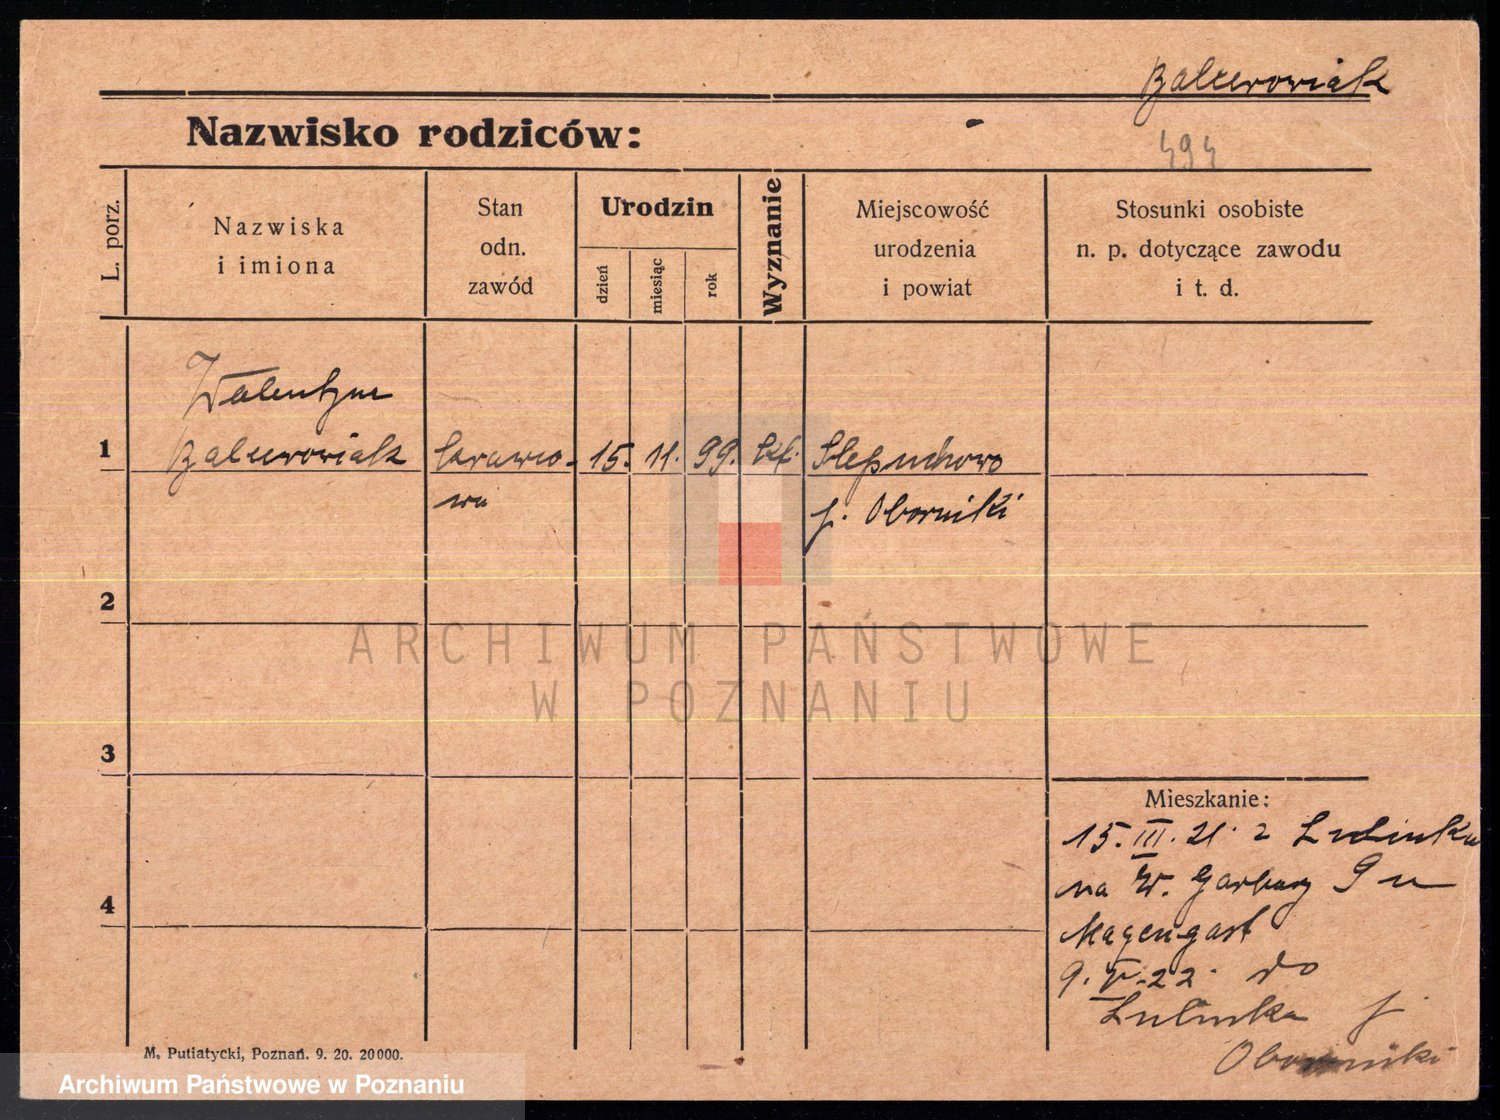 Balcerowiak
Nazwisko rodziców:
494
L. porz.
Nazwiska
i imiona
Stan
odn.
zawód
Urodzin
dzień
miesiąc
rok
Wyznanie
Miejscowość
urodzenia
i powiat
Stosunki osobiste
n. p. dotyczące zawodu
i t. d.
1
Walentyna
Balcerowiak
krawco-
wa
15. 11. 99. kt. Słepuchowo
p. Oborniki
2
ARCHIWUM PAŃSTWOWE
W POZNANIU
3
Mieszkanie:
15. III. 21. z Lulinka
na W. Garbary 9 u
Magengast
4
9. V. 22. do
Lulinka p.
Oborniki
M. Putiatycki, Poznań. 9. 20. 20000.
Archiwum Państwowe w Poznaniu